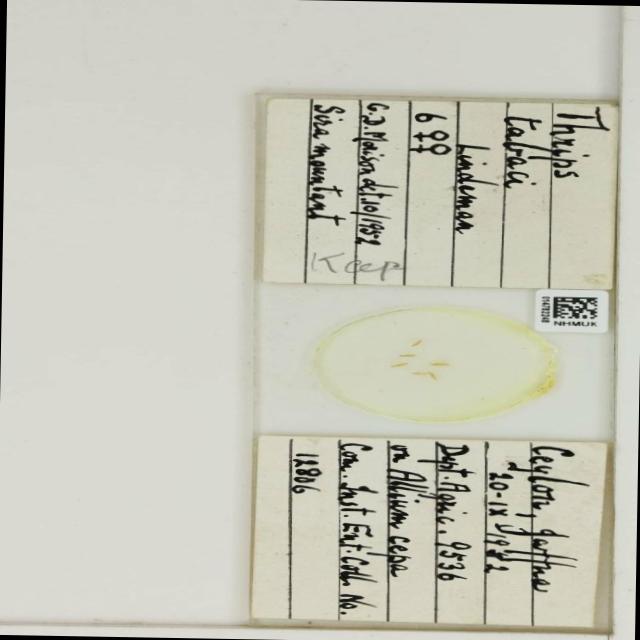 Thrips
tabaci
Lindeman
6 ♀♀
G.D. Morison det. 10/1952
Sira mountant
Keep
NHMUK
Ceylon, Jaffna
20-IX-1952
Dept. Agric. 9536
on Allium cepa
Com. Inst. Ent. Coll. No.
12806